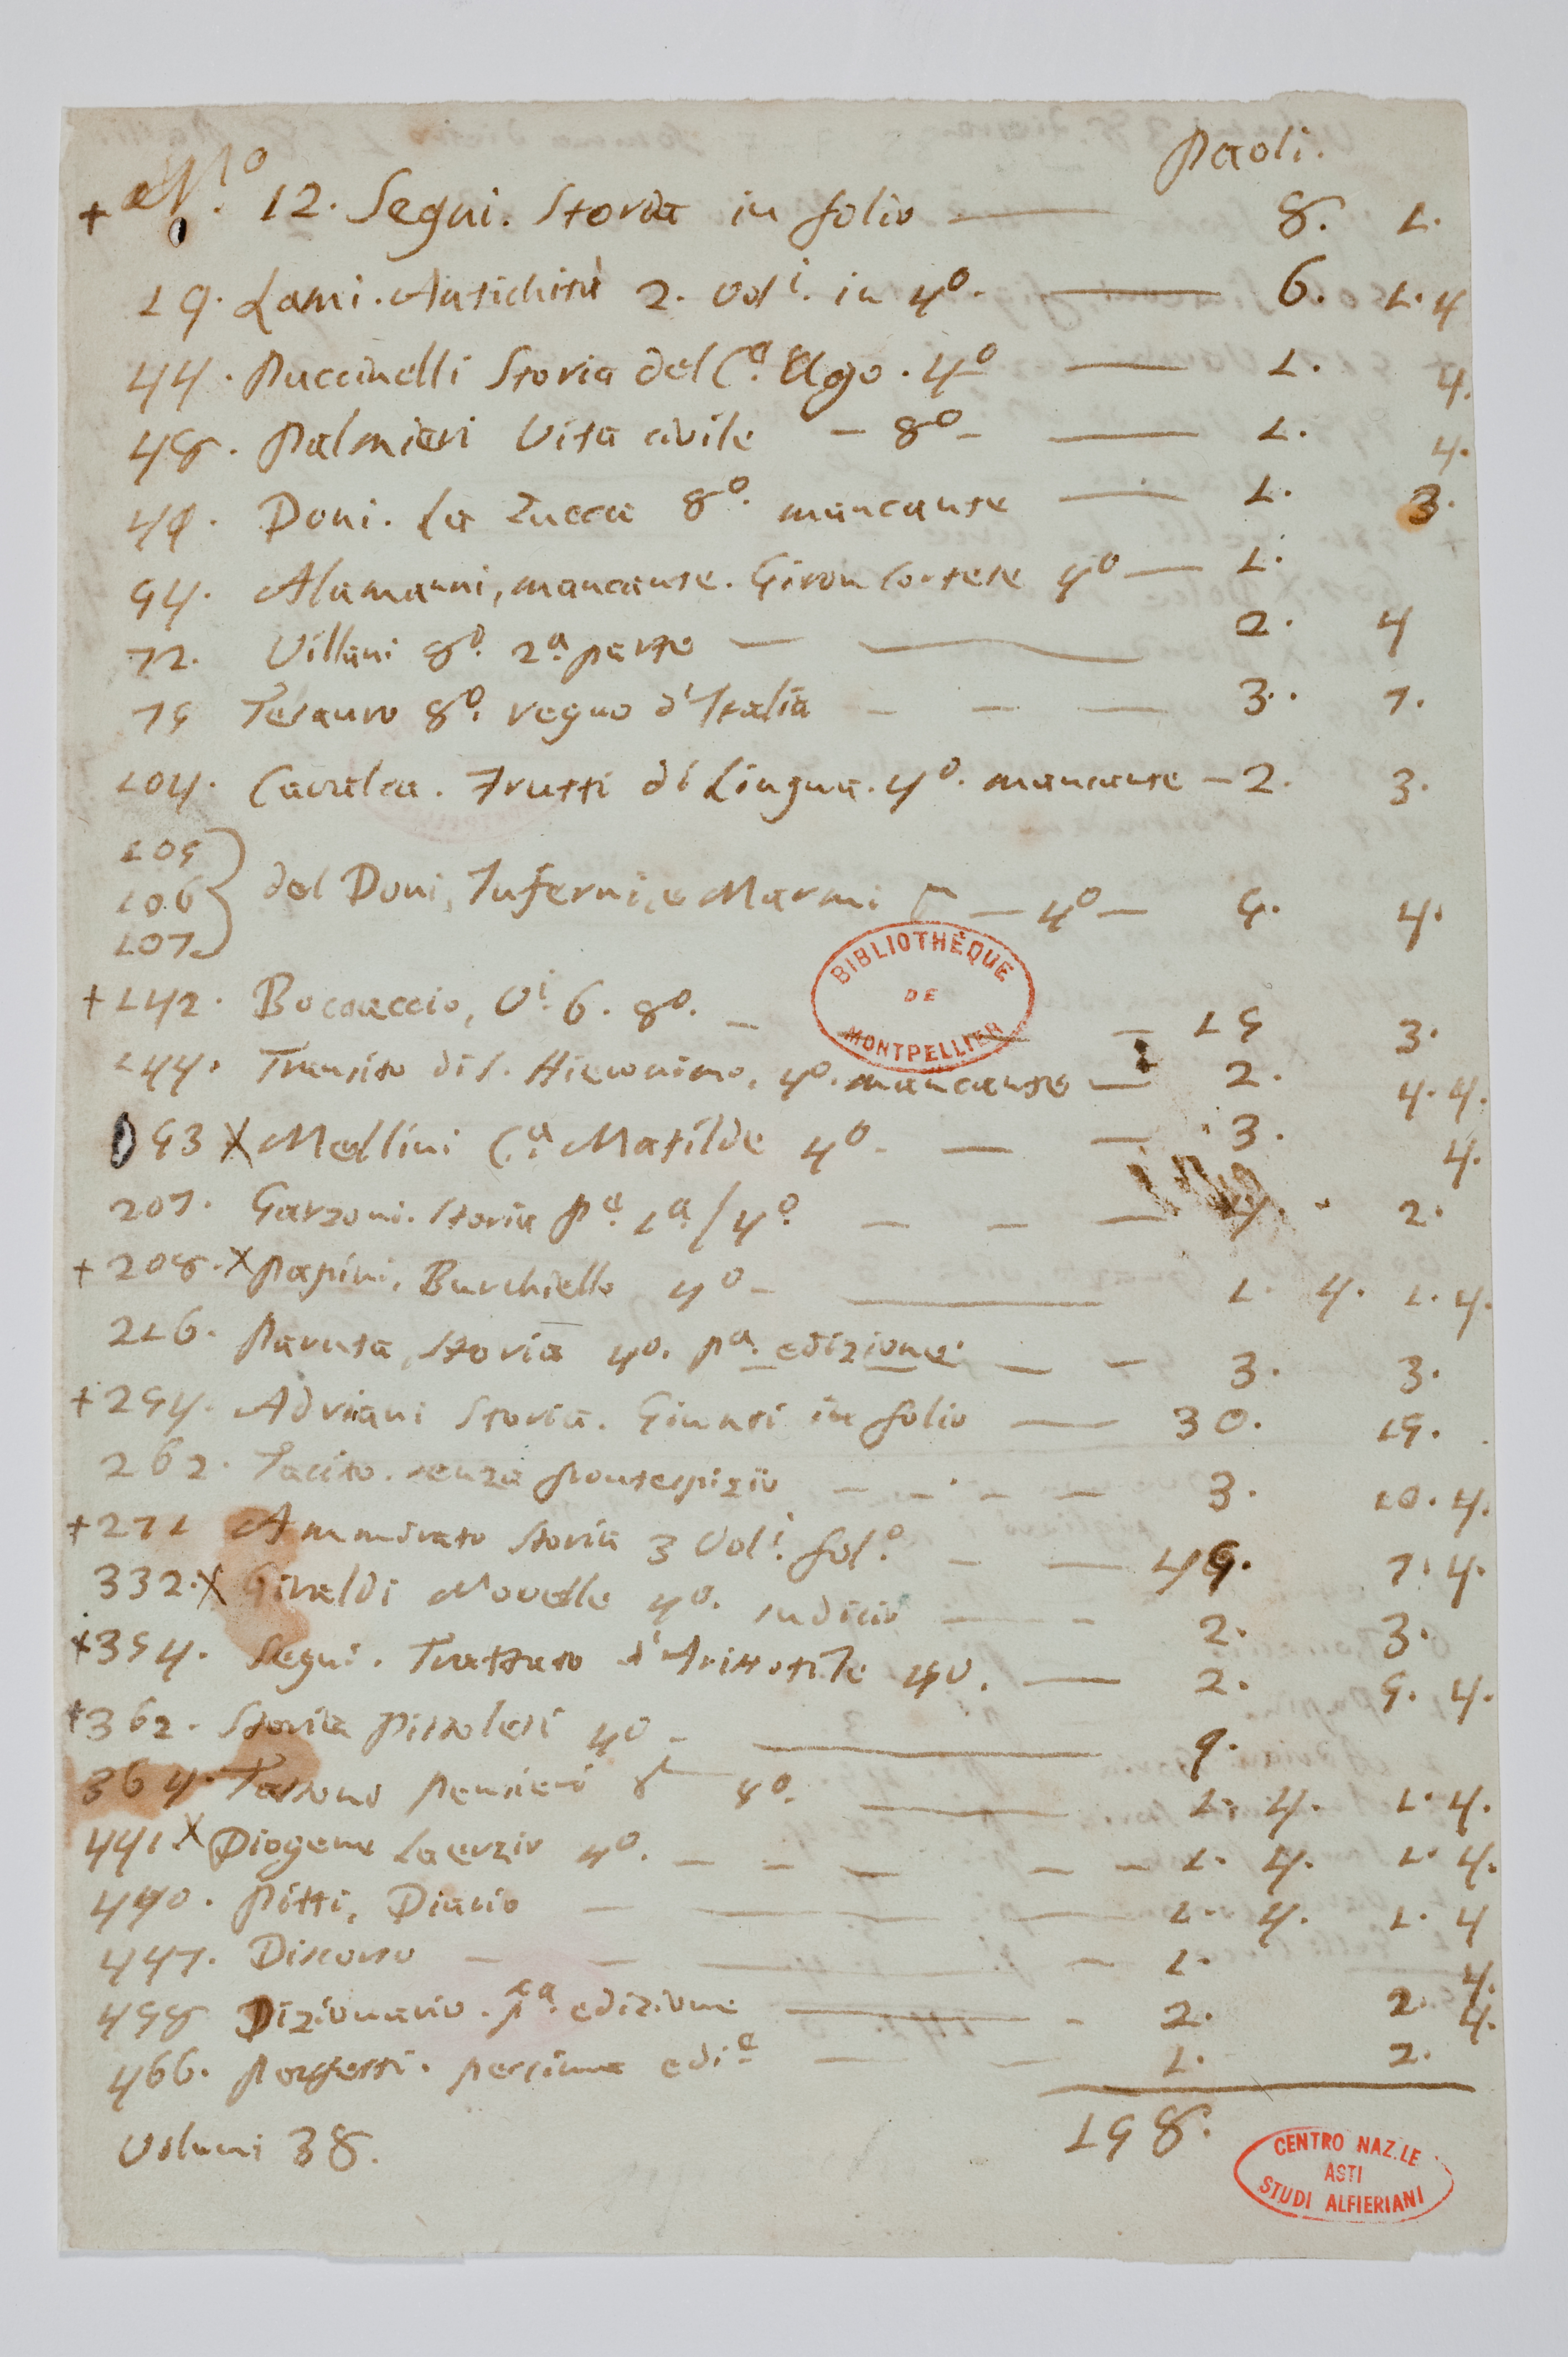 Paoli.
+ N.º 12. Segni. Storia in folio — 8. 1.
19. Lami. Antichità 2. Vol.i in 4º. — 6. 1. 4
44. Puccinelli Storia del C.e Ugo. 4º — 1. 4.
48. Palmieri Vita civile — 8º — 1. 4.
49. Doni. La Zucca 8º. mancante — 1. 3.
54. Alamanni, mancante. Giron Cortese 4º — 1.
72. Villani 8º. 2.a parte — 2. 4
75 Tesauro 8º. regno d'Italia — 3. 7.
104. Cavalca. Frutti di Lingua. 4º. mancante — 2. 3.
105
106
107
del Doni, Inferni, e Marmi — 4º — 5. 4.
+ 142. Boccaccio, V.i 6. 8º. — 15 3.
144. Transito di S. Hieronimo. 4º. mancante — 2. 4. 4.
53 X Mellini C.a Matilde 4º. — 3. 4.
207. Garzoni. Storia P.e 1.a / 4º — 4. 2.
+ 208. X Papini. Burchiello 4º — 1. 4. 1. 4.
216. Paruta, Storia 4º. p.a edizione — 3. 3.
+ 254. Adriani Storia. Giunti in folio — 30. 15.
262. Tacito. senza frontespizio — 3. 10. 4.
+ 271 Ammirato Storia 3 Vol.i fol.º — 45. 7. 4.
332. X Giraldi Novelle 4º. sudicio — 2. 3.
+ 354. Segni. Trattato d'Aristotile 4º. — 2. 5. 4.
+ 362. Storia Pistolesi 4º — 9.
364. Tassono Pensieri 4º. — 1. 4. 1. 4.
441 X Diogene Laerzio 4º. — 1. 4. 1. 4.
440. Pitti, Diario — 1. 4. 1. 4
447. Discorso — 1. 4.
458 Dizionario. p.a edizione — 2. 2. 4.
466. pessima edi.e — 1. 2.
Volumi 38. 158.
BIBLIOTHÈQUE
DE
MONTPELLIER
CENTRO NAZ.LE
ASTI
STUDI ALFIERIANI